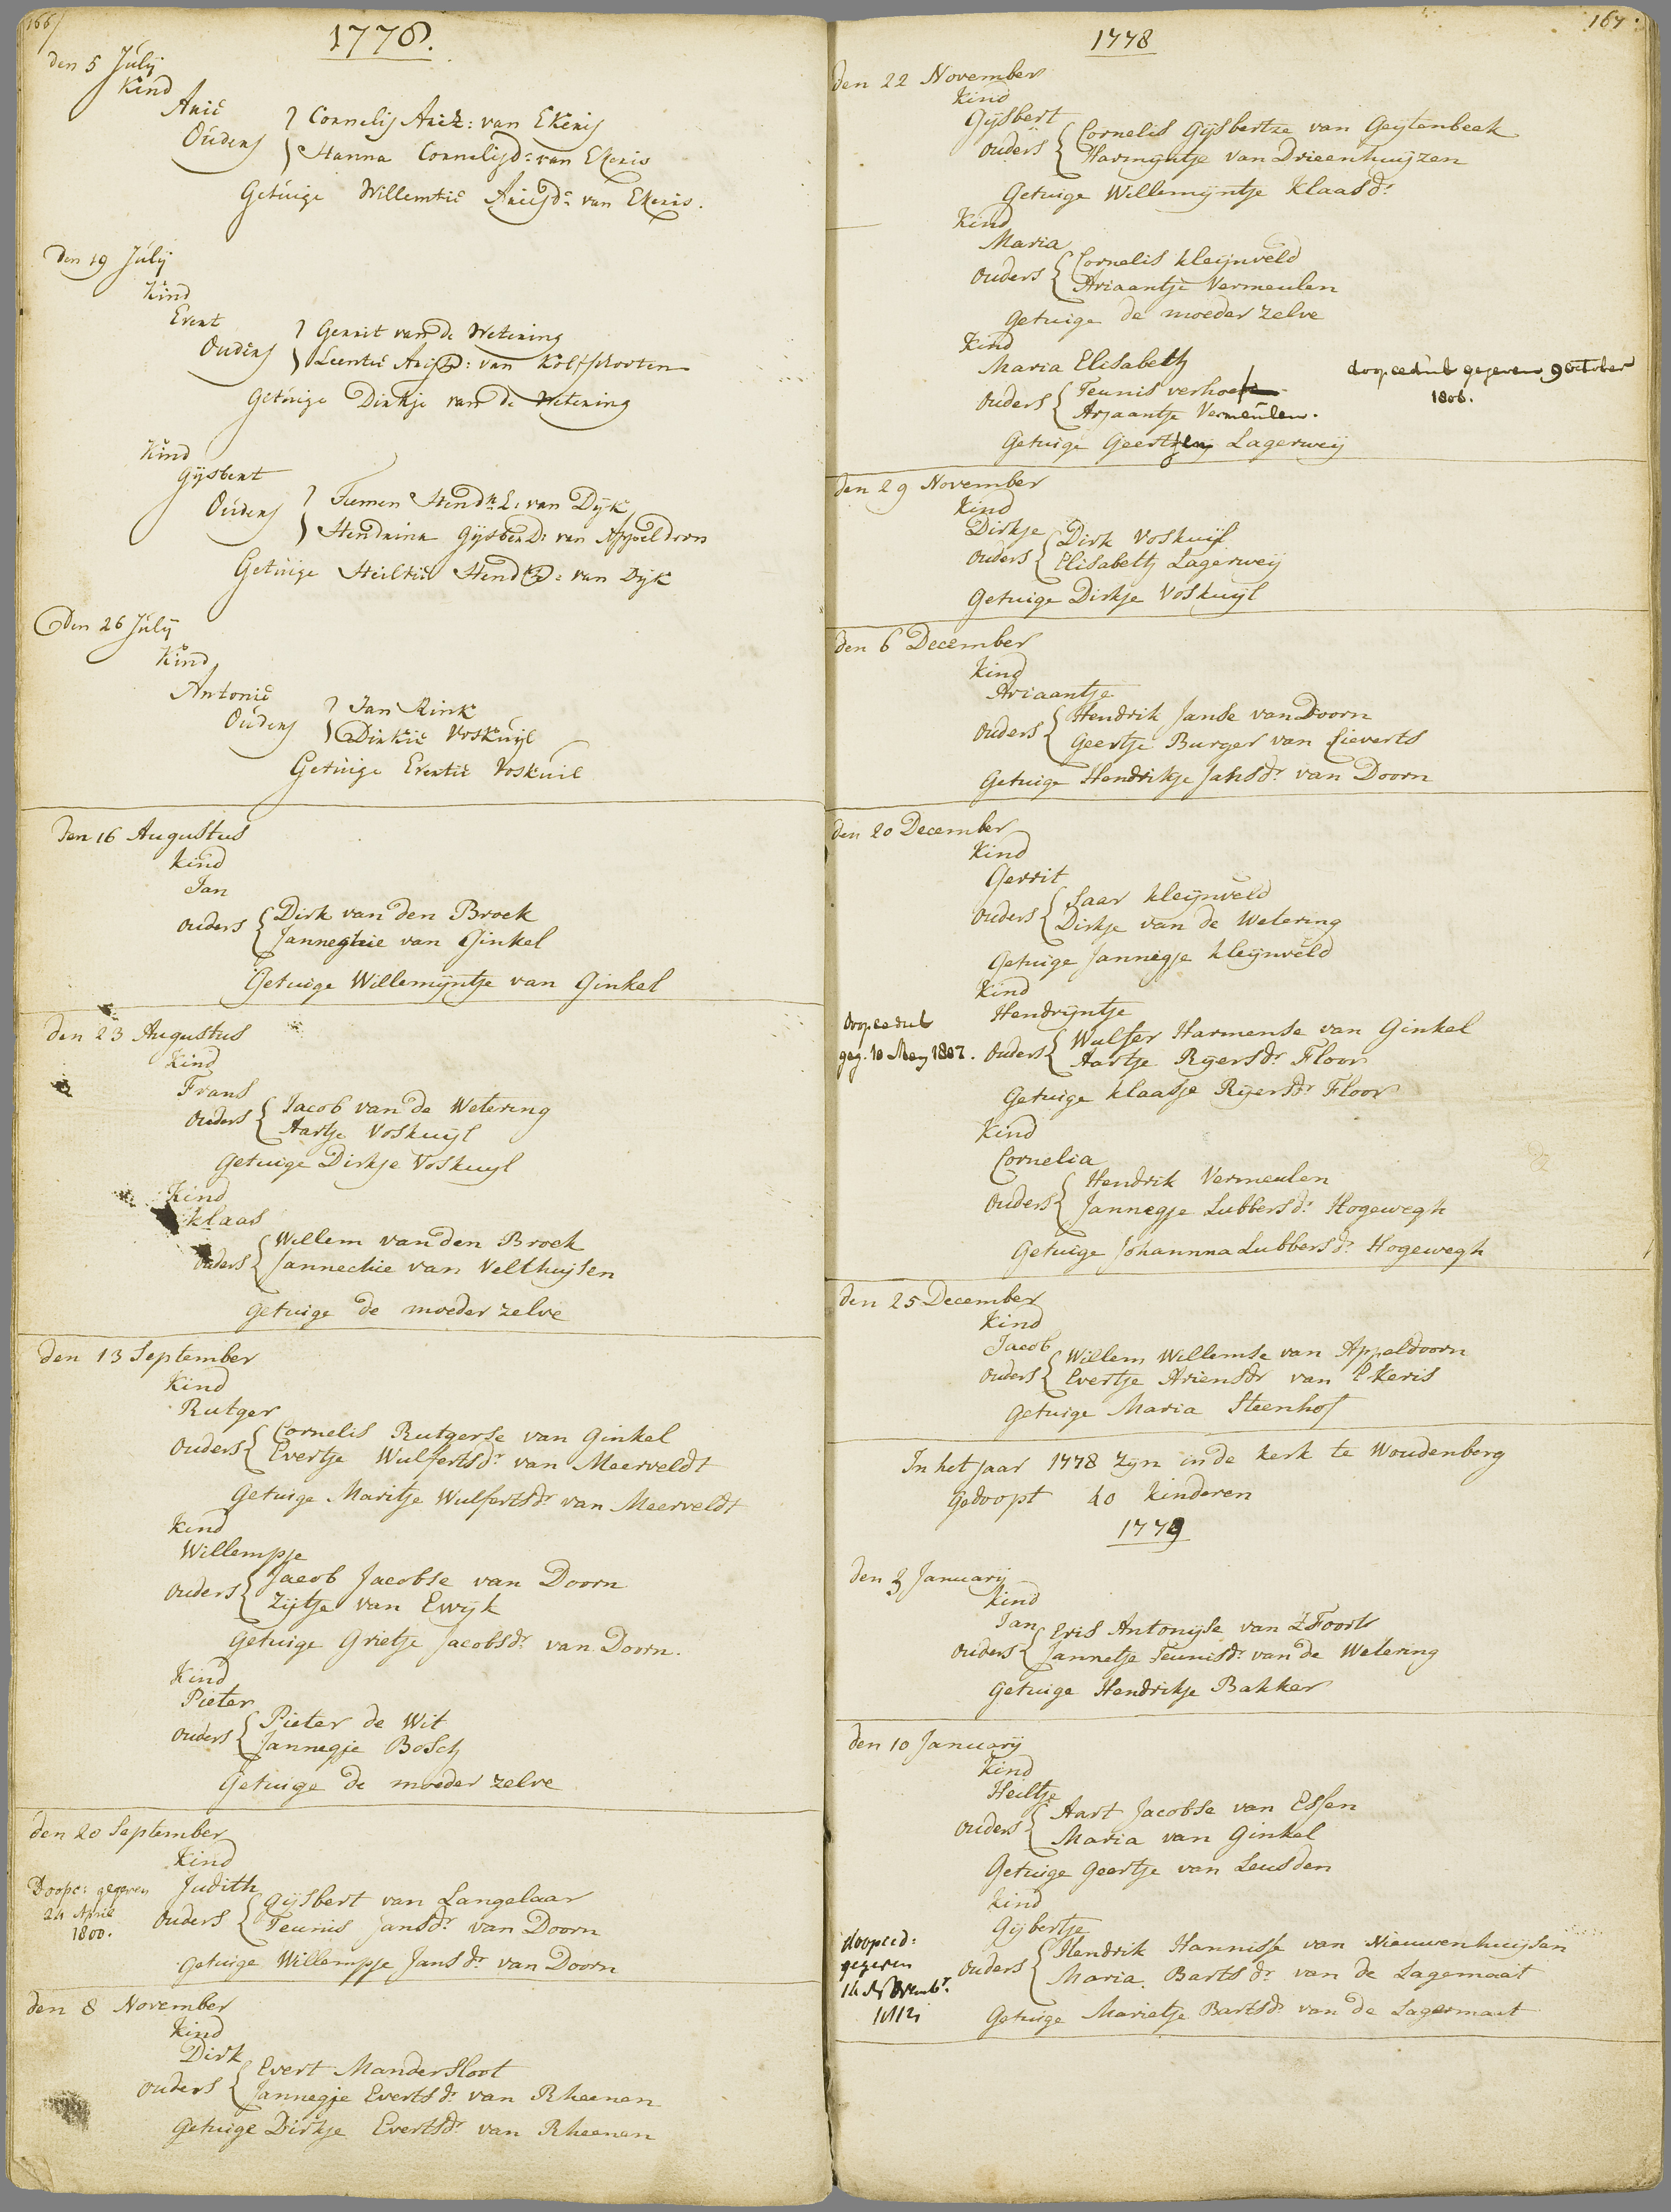 166
1778.
den 5 Julij
Kind
Arie
Ouders
Cornelis Ariz: van Ekeris
Hanna Cornelisd: van Ekeris
Getuige Willemtie Ariesd: van Ekeris.
Den 19 Julij
Kind
Evert
Ouders
Gerrit van de Wetering
Leentie van Kolfschooten
Getuige Dirkje van de Wetering
Kind
Gijsbert
Ouders
Tiemen Hendr: van Dijk
Hendrina Gijsberd: van Appeldoorn
Getuige Heiltie Hend: van Dijk
Den 26 Julij
Kind
Antonie
Ouders
Jan Rink
Dirkie Voskuijl
Getuige Evertie Voskuil
Den 16 Augustus
Kind
Jan
Ouders
Dirk van den Broek
Janneghie van Ginkel
Getuige Willemijntje van Ginkel
den 23 Augustus
Kind
Frans
Ouders
Jacob van de Wetering
Aartje Voskuijl
Getuige Dirkje Voskuijl
Kind
Klaas
Ouders
Willem van den Broek
Jannechie van Velthuijsen
Getuige de moeder zelve
den 13 September
Kind
Rutger
Ouders
Cornelis Rutgerse van Ginkel
Evertje Wulfertsdr van Meerveldt
Getuige Maritje Wulfertsdr van Meerveldt
Kind
Willempje
Ouders
Jacob Jacobse van Doorn
Zijtje van Ewijk
Getuige Grietje Jacobsdr van Doorn.
Kind
Pieter
Ouders
Pieter de Wit
Jannegje Bosch
Getuige de moeder zelve
den 20 September
Kind
Doopc: gegeven
24 April
1800.
Judith
Ouders
Gijsbert van Langelaar
Teunis Jansdr van Doorn
Getuige Willempje Jansdr van Doorn
den 8 November
Kind
Dirk
Ouders
Evert Mandersloot
Jannegje Evertsdr van Rheenen
Getuige Dirkje Evertsdr van Rheenen
167
1778
den 22 November
Kind
Gijsbert
Ouders
Cornelis Gijsbertze van Geijtenbeek
Harmijntje van Drieenhuijzen
Getuige Willemijntje Klaasdr
Kind
Maria
Ouders
Cornelis Kleijnveld
Ariaantje Vermeulen
Getuige de moeder zelve
Kind
Maria Elisabeth
Ouders
Teunis verhoef
Arjaantje Vermeulen.
doopcedul gegeven 9 October
1806.
Getuige Lagerweij
den 29 November
Kind
Dirkje
Ouders
Dirk Voskuijl
Elisabeth Lagerweij
Getuige Dirkje Voskuijl
den 6 December
Kind
Ariaantje
Ouders
Hendrik Janse van Doorn
Geertje Burger van Lieverts
Getuige Hendrikje Jansdr van Doorn
den 20 December
Kind
Gerrit
Ouders
Saar Kleijnveld
Dirkje van de Wetering
Getuige Jannigje Kleijnveld
Kind
Hendrijntje
doopcedul
geg. 10 Meij 1807.
Ouders
Wulfer Harmense van Ginkel
Aartje Rijersdr Floor
Getuige Klaasje Rijersdr Floor
Kind
Cornelia
Ouders
Hendrik Vermeulen
Jannegje Lubbersdr Hogewegh
Getuige Johannna Lubbersdr Hogewegh
den 25 December
Kind
Jacob
Ouders
Willem Willemse van Appeldoorn
Evertje Ariensdr van Ekeris
Getuige Maria Steenhof
In het jaar 1778 Zijn in de Kerk te Woudenberg
gedoopt 40 Kinderen
1779
den 3 Januarij
Kind
Jan
Ouders
Eris Antonijse van Foort
Jannetje Teunisdr van de Wetering
Getuige Hendrikje Bakker
den 10 Januarij
Kind
Heiltje
Ouders
Aart Jacobse van Essen
Maria van Ginkel
Getuige Geertje van Leusden
Kind
Gijbertje
doopced:
gegeven
14 Novembr.
1812
Ouders
Hendrik Hannisse van Nieuwenhuijsen
Maria Bartsdr van de Lagemaat
Getuige Marietje Bartsdr van de Lagemaat